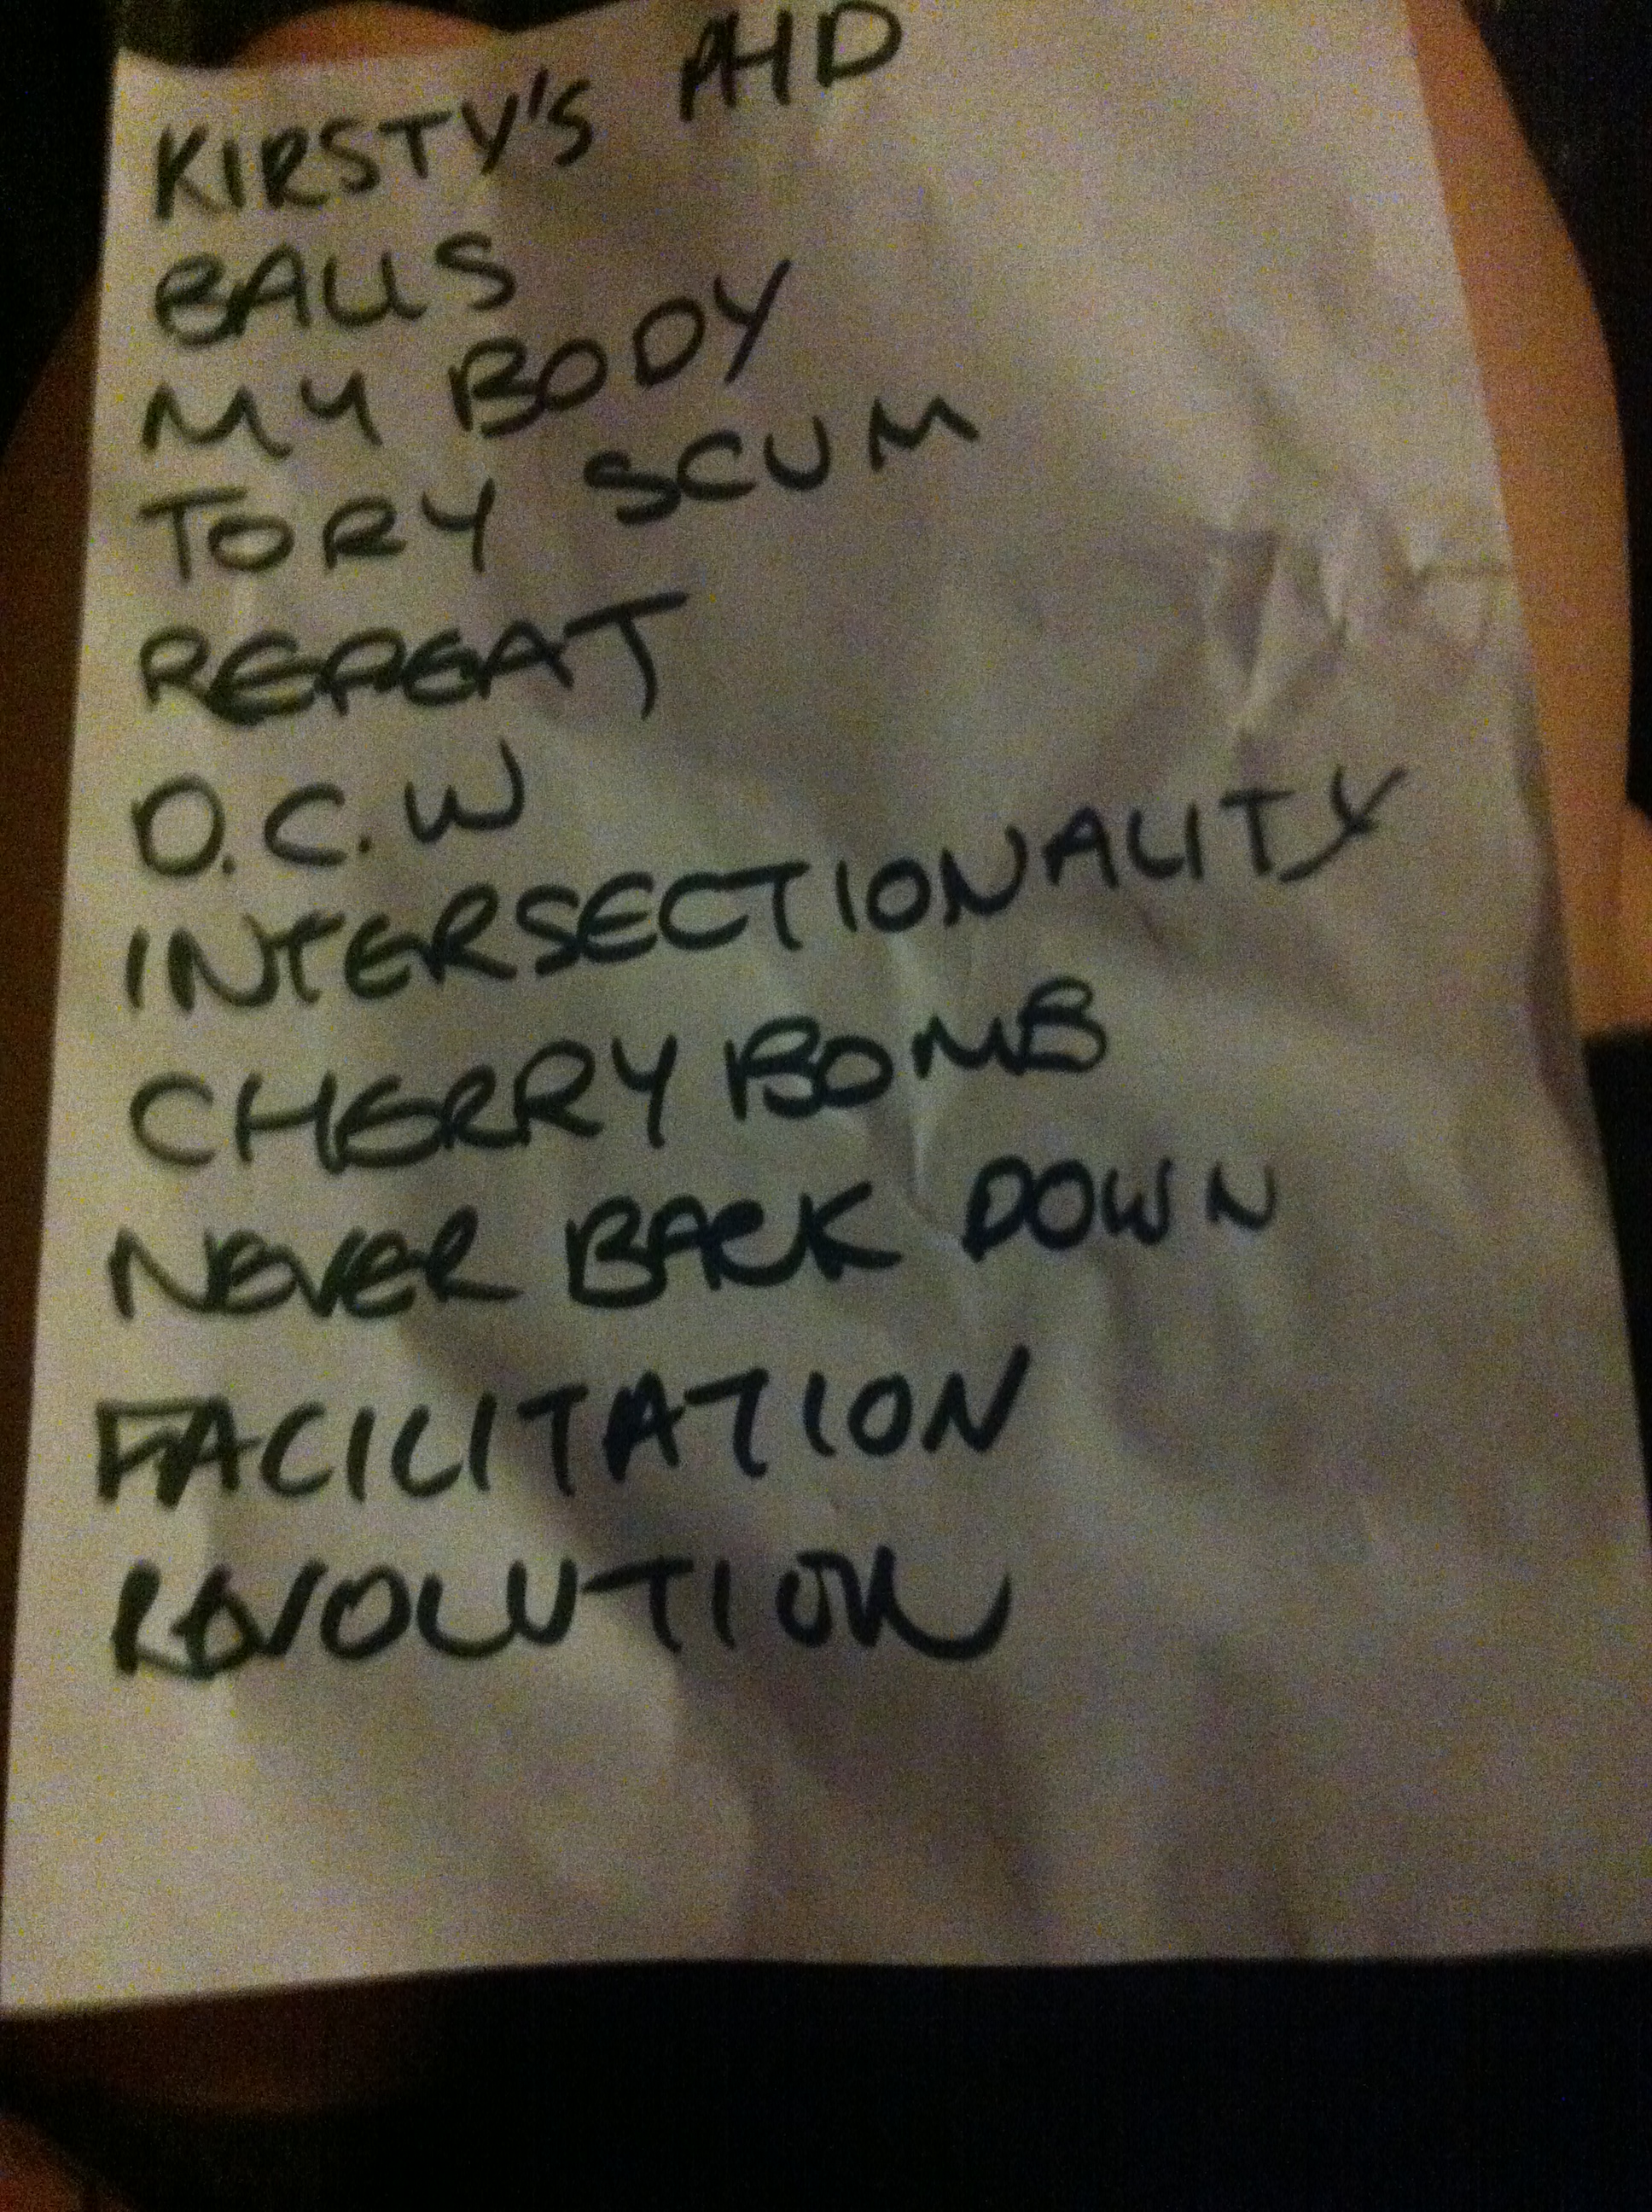 KIRSTY'S PHD
BALLS
MY BODY
TORY SCUM
REPEAT
O.C.W
INTERSECTIONALITY
CHERRY BOMB
NEVER BACK DOWN
FACILITATION
REVOLUTION